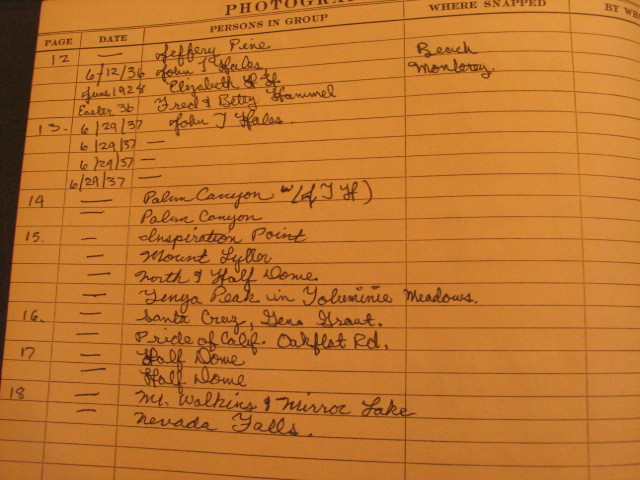 PHOTOGRA
PAGE DATE PERSONS IN GROUP WHERE SNAPPED BY WH
12 — Jeffery Pine Beach
6/12/36 John T Hales, Monterey
June 1928 Elizabeth H H
Easter 36 Fred & Betty Hammel
13. 6/29/37 John T Hales.
6/29/37 —
6/29/37 —
6/29/37 —
14 — Palm Canyon w/(J T H)
— Palm Canyon
15. — Inspiration Point
— Mount Lyller
— North & Half Dome.
— Tenya Peak in Toluminie Meadows.
16. — Santa Cruz, Gen. Grant.
— Pride of Calif. Oakflat Rd.
17 — Half Dome
— Half Dome
18 — Mt. Walkins & Mirror Lake
— Nevada Falls.